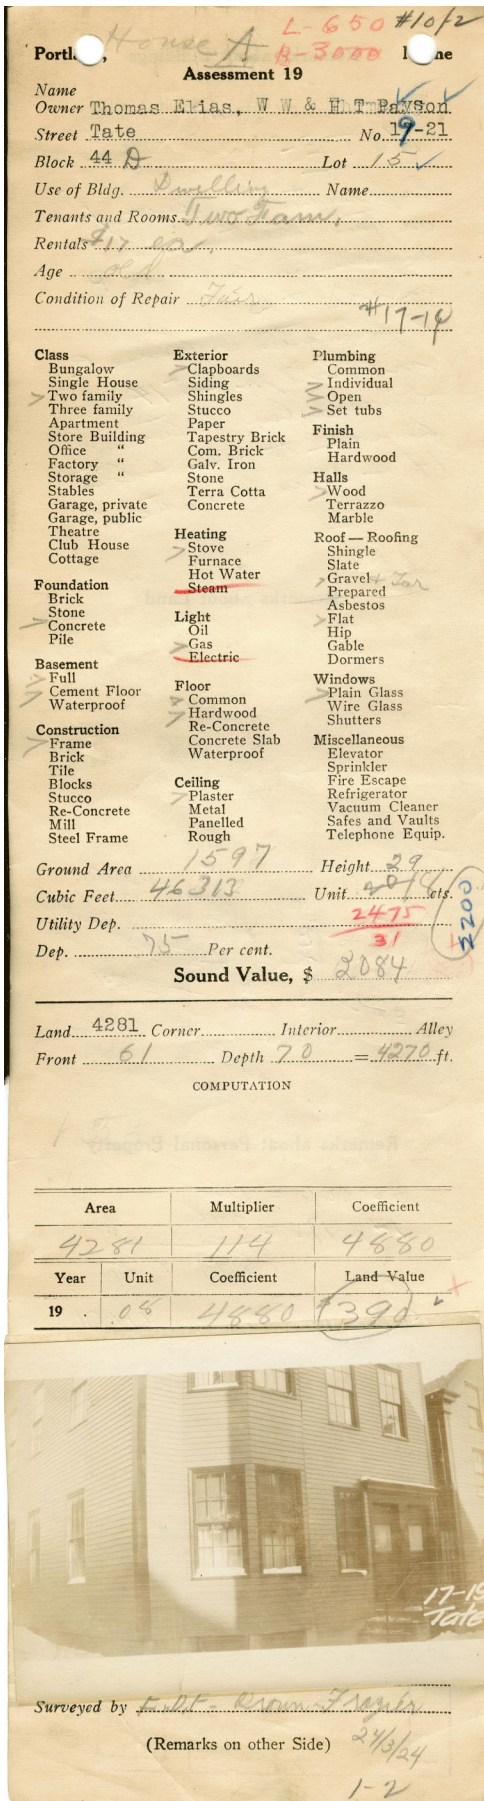 L-650 #10/2
House A B-3000
Portland, Maine
Assessment 19
Name
Owner Thomas Elias, W W & H T Payson
Street Tate No. 19-21
Block 44 D Lot 15
Use of Bldg. Dwelling Name
Tenants and Rooms Two Fam.
Rentals $17 ea.
Age old
Condition of Repair Fair
#17-19
Class
Bungalow
Single House
Two family
Three family
Apartment
Store Building
Office "
Factory "
Storage "
Stables
Garage, private
Garage, public
Theatre
Club House
Cottage
Foundation
Brick
Stone
Concrete
Pile
Basement
Full
Cement Floor
Waterproof
Construction
Frame
Brick
Tile
Blocks
Stucco
Re-Concrete
Mill
Steel Frame
Exterior
Clapboards
Siding
Shingles
Stucco
Paper
Tapestry Brick
Com. Brick
Galv. Iron
Stone
Terra Cotta
Concrete
Heating
Stove
Furnace
Hot Water
Steam
Light
Oil
Gas
Electric
Floor
Common
Hardwood
Re-Concrete
Concrete Slab
Waterproof
Ceiling
Plaster
Metal
Panelled
Rough
Plumbing
Common
Individual
Open
Set tubs
Finish
Plain
Hardwood
Halls
Wood
Terrazzo
Marble
Roof — Roofing
Shingle
Slate
Gravel + Tar
Prepared
Asbestos
Flat
Hip
Gable
Dormers
Windows
Plain Glass
Wire Glass
Shutters
Miscellaneous
Elevator
Sprinkler
Fire Escape
Refrigerator
Vacuum Cleaner
Safes and Vaults
Telephone Equip.
Ground Area 1597 Height 29
Cubic Feet 46313 Unit cts.
Utility Dep. 2475
31
2200
Dep. 75 Per cent.
Sound Value, $ 2084
Land 4281 Corner Interior Alley
Front 61 Depth 70 = 4270 ft.
COMPUTATION
Area Multiplier Coefficient
4281 114 4880
Year Unit Coefficient Land Value
19 .08 4880 $390
17-19
Tate
Surveyed by Frazier
(Remarks on other Side)
24/3/24
1-2